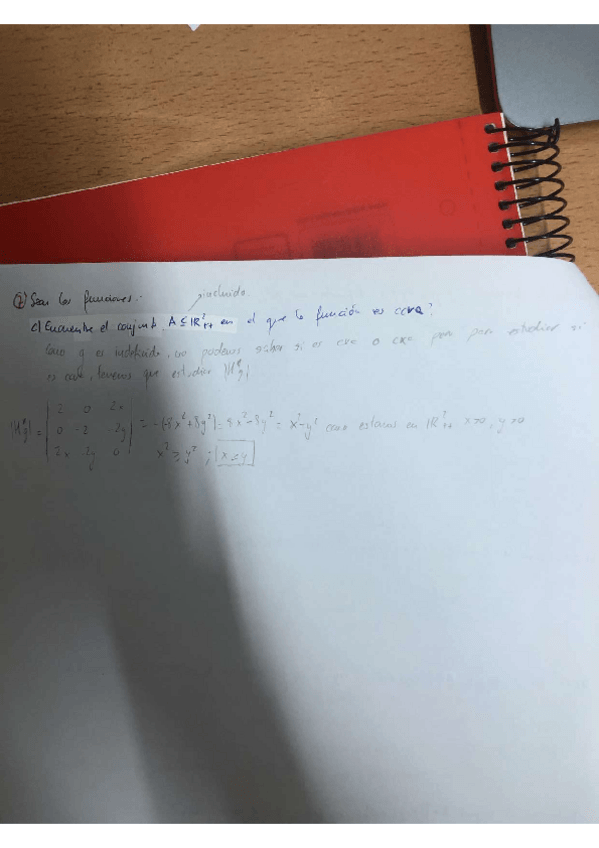 ② Sean las funciones:
incluido
c) Encuentre el conjunto A ⊆ ℝ²₊₊ en el que la función es ccva?
Como g es indefinido, no podemos saber si es cva o cxa pero para estudiar si
es ccva, tenemos que estudiar |H̄g|
|H̄g| = | 2 0 2x | = -(-8x² + 8y²) = 8x² - 8y² = x² - y² como estamos en ℝ²₊₊ x>0, y>0
0 -2 -2y
2x 2y 0 x² ≥ y² ;